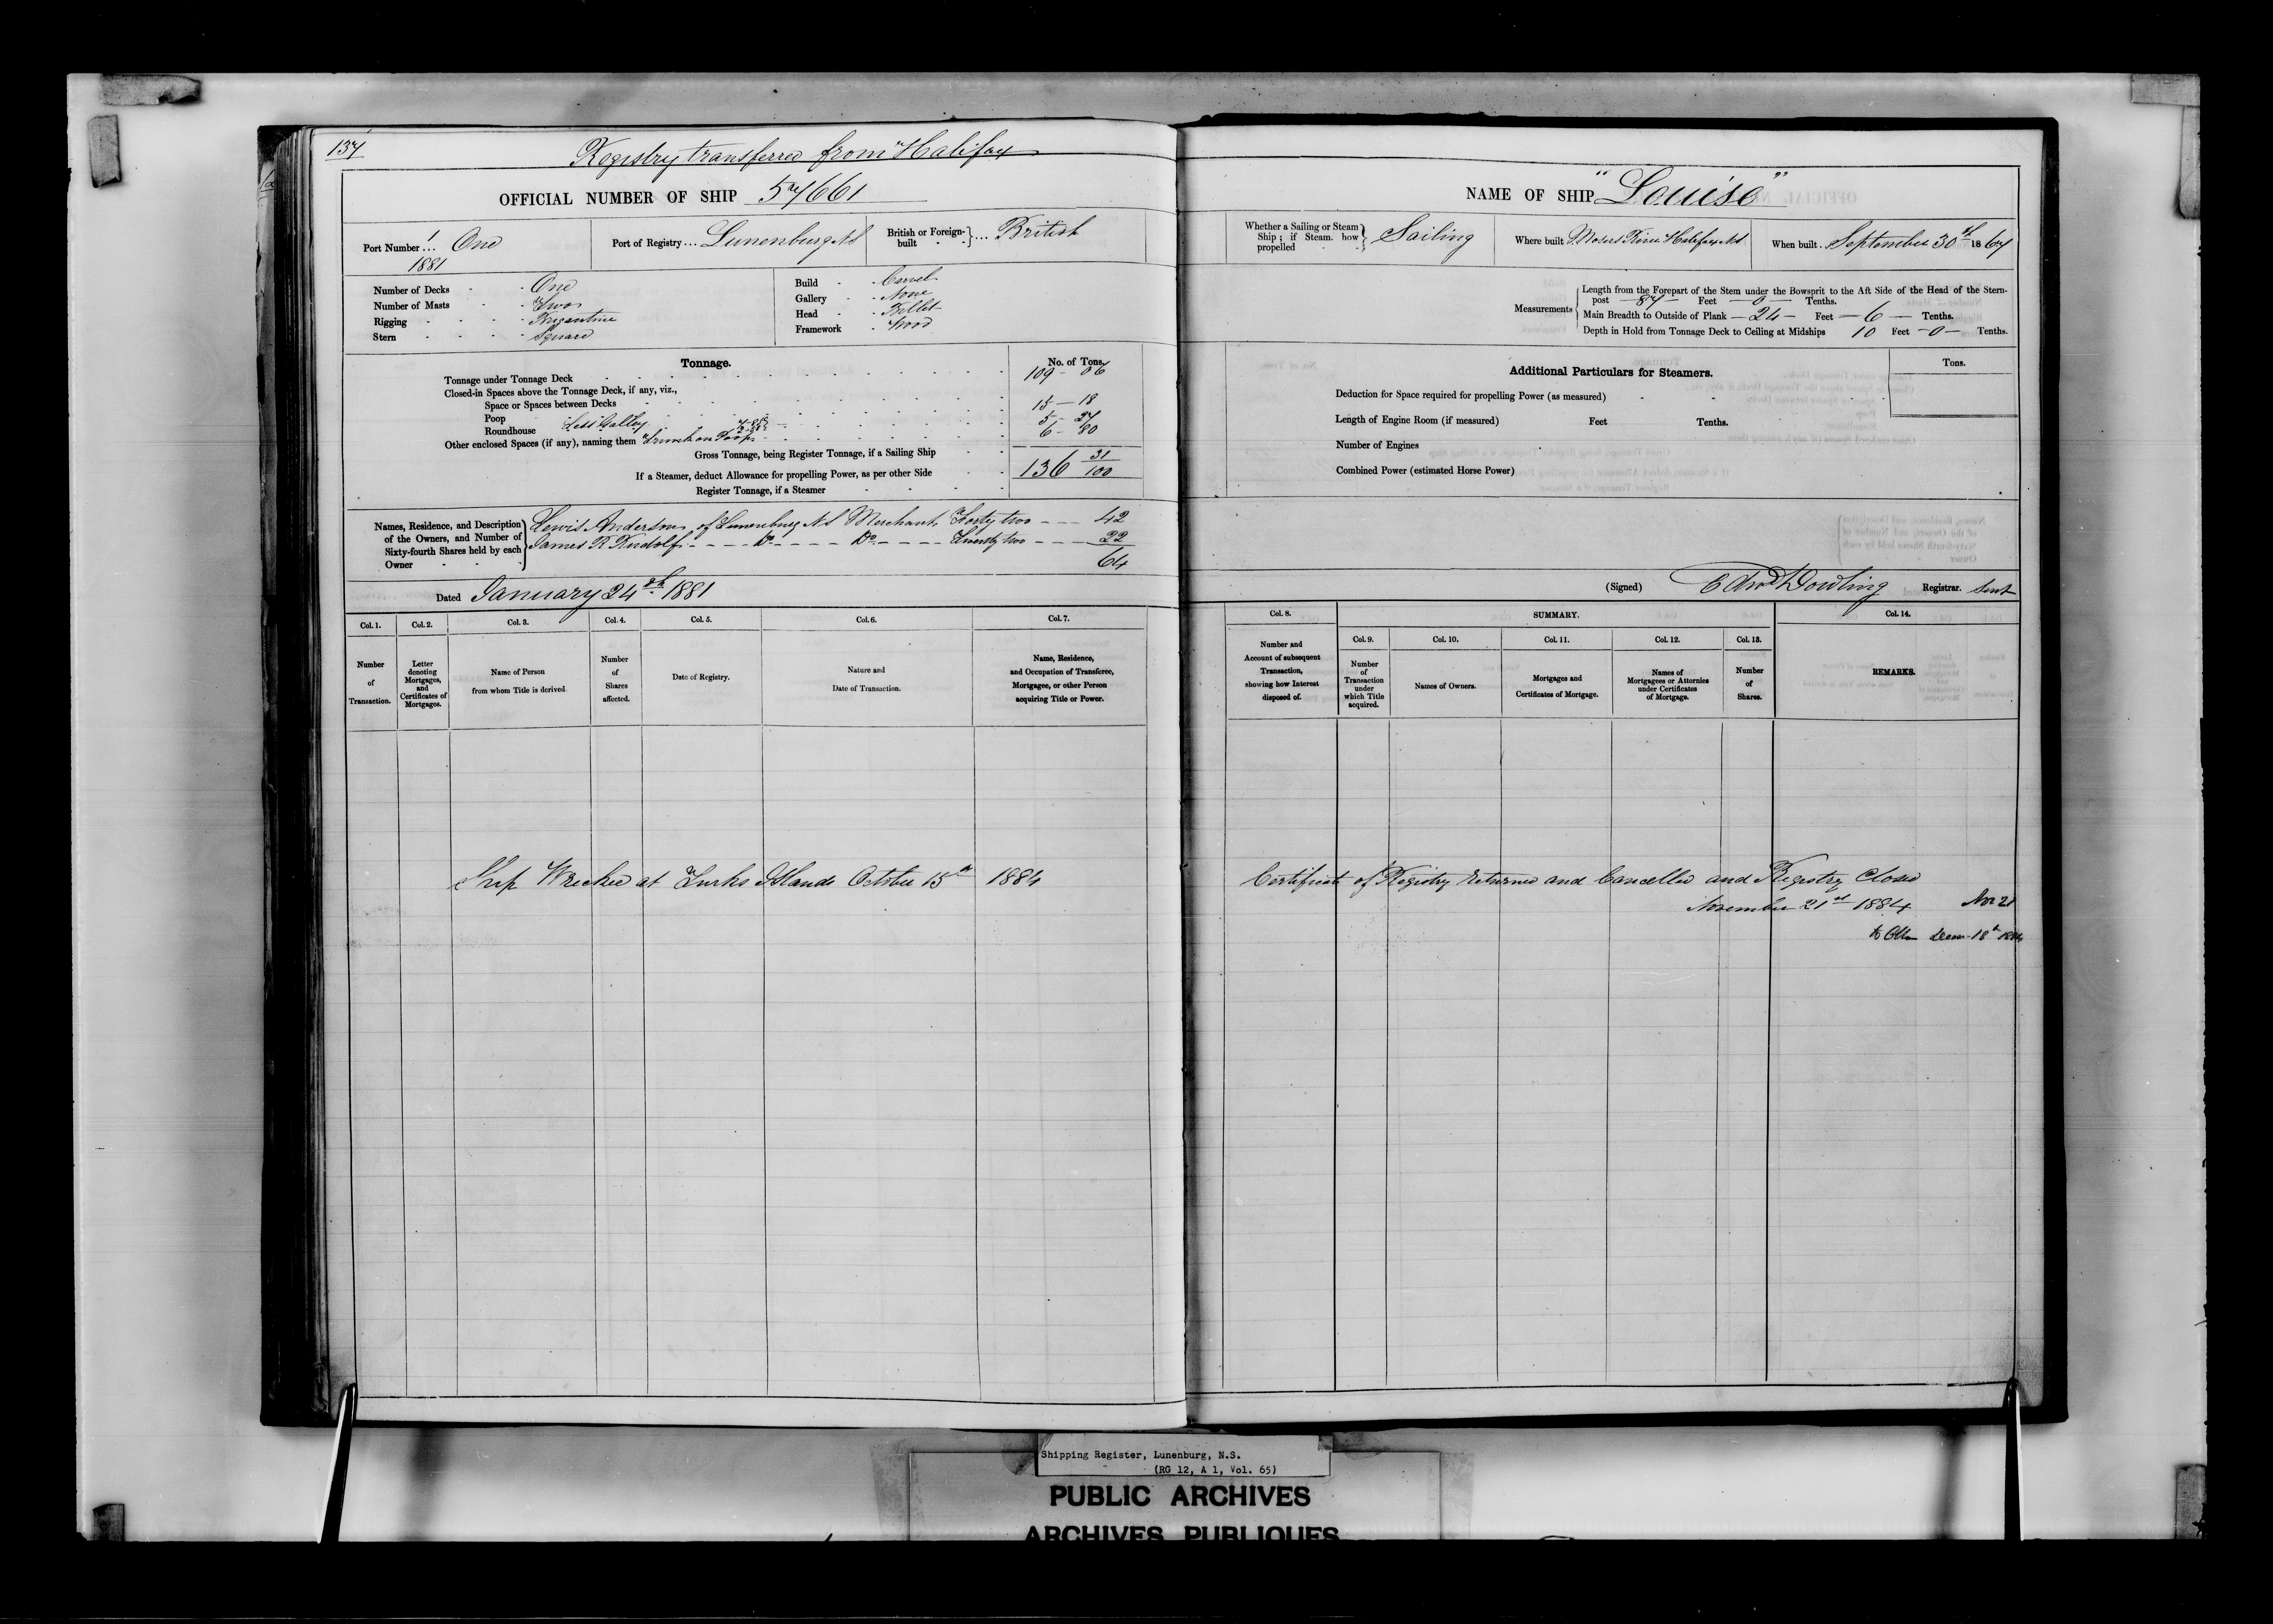 137
Registry transferred from Halifax
OFFICIAL NUMBER OF SHIP 57661
Port Number 1 ... One
1881
Port of Registry ... Lunenburg NS
British or Foreign-built } ... British
Number of Decks - One
Number of Masts - Two
Rigging - Brigantine
Stern - Square
Build - Carvel
Gallery - None
Head - Fillet
Framework - Wood
Tonnage.
No. of Tons.
Tonnage under Tonnage Deck 109 - 06
Closed-in Spaces above the Tonnage Deck, if any, viz.,
Space or Spaces between Decks
Poop 15 - 18
Roundhouse Less Galley 5 - 27
Other enclosed Spaces (if any), naming them Trunk on Poop 6 - 80
Gross Tonnage, being Register Tonnage, if a Sailing Ship 136 31/100
If a Steamer, deduct Allowance for propelling Power, as per other Side
Register Tonnage, if a Steamer
Names, Residence, and Description of the Owners, and Number of Sixty-fourth Shares held by each Owner
Lewis Anderson of Lunenburg NS Merchant Forty two - - - 42
James R Rudolf - - - Do - - - - Do - - - - Twenty two - - - 22
64
Dated January 24th 1881
Col. 1.
Number of Transaction.
Col. 2.
Letter denoting Mortgages, and Certificates of Mortgages.
Col. 3.
Name of Person from whom Title is derived.
Col. 4.
Number of Shares affected.
Col. 5.
Date of Registry.
Col. 6.
Nature and Date of Transaction.
Col. 7.
Name, Residence, and Occupation of Transferee, Mortgagee, or other Person acquiring Title or Power.
Ship Wrecked at Turks Islands October 15th 1884
NAME OF SHIP "Louise"
Whether a Sailing or Steam Ship; if Steam how propelled } Sailing
Where built Mosers River Halifax NS
When built . . September 30th 1867
Measurements
Length from the Forepart of the Stem under the Bowsprit to the Aft Side of the Head of the Stern-
post — 87 — Feet — 0 — Tenths.
Main Breadth to Outside of Plank — 24 — Feet — 6 — Tenths.
Depth in Hold from Tonnage Deck to Ceiling at Midships 10 Feet — 0 — Tenths.
Additional Particulars for Steamers.
Tons.
Deduction for Space required for propelling Power (as measured)
Length of Engine Room (if measured) Feet Tenths.
Number of Engines
Combined Power (estimated Horse Power)
(Signed) Edwd Dowling Registrar. Sent
Col. 8.
Number and Account of subsequent Transaction, showing how Interest disposed of.
SUMMARY.
Col. 9.
Number of Transaction under which Title acquired.
Col. 10.
Names of Owners.
Col. 11.
Mortgages and Certificates of Mortgage.
Col. 12.
Names of Mortgagees or Attornies under Certificates of Mortgage.
Col. 13.
Number of Shares.
Col. 14.
REMARKS.
Certificate of Registry Returned and Cancelled and Registry Closed
November 21st 1884 Nov 21
Decem 18th 1884
Shipping Register, Lunenburg, N.S.
(RG 12, A 1, Vol. 65)
PUBLIC ARCHIVES
ARCHIVES PUBLIQUES